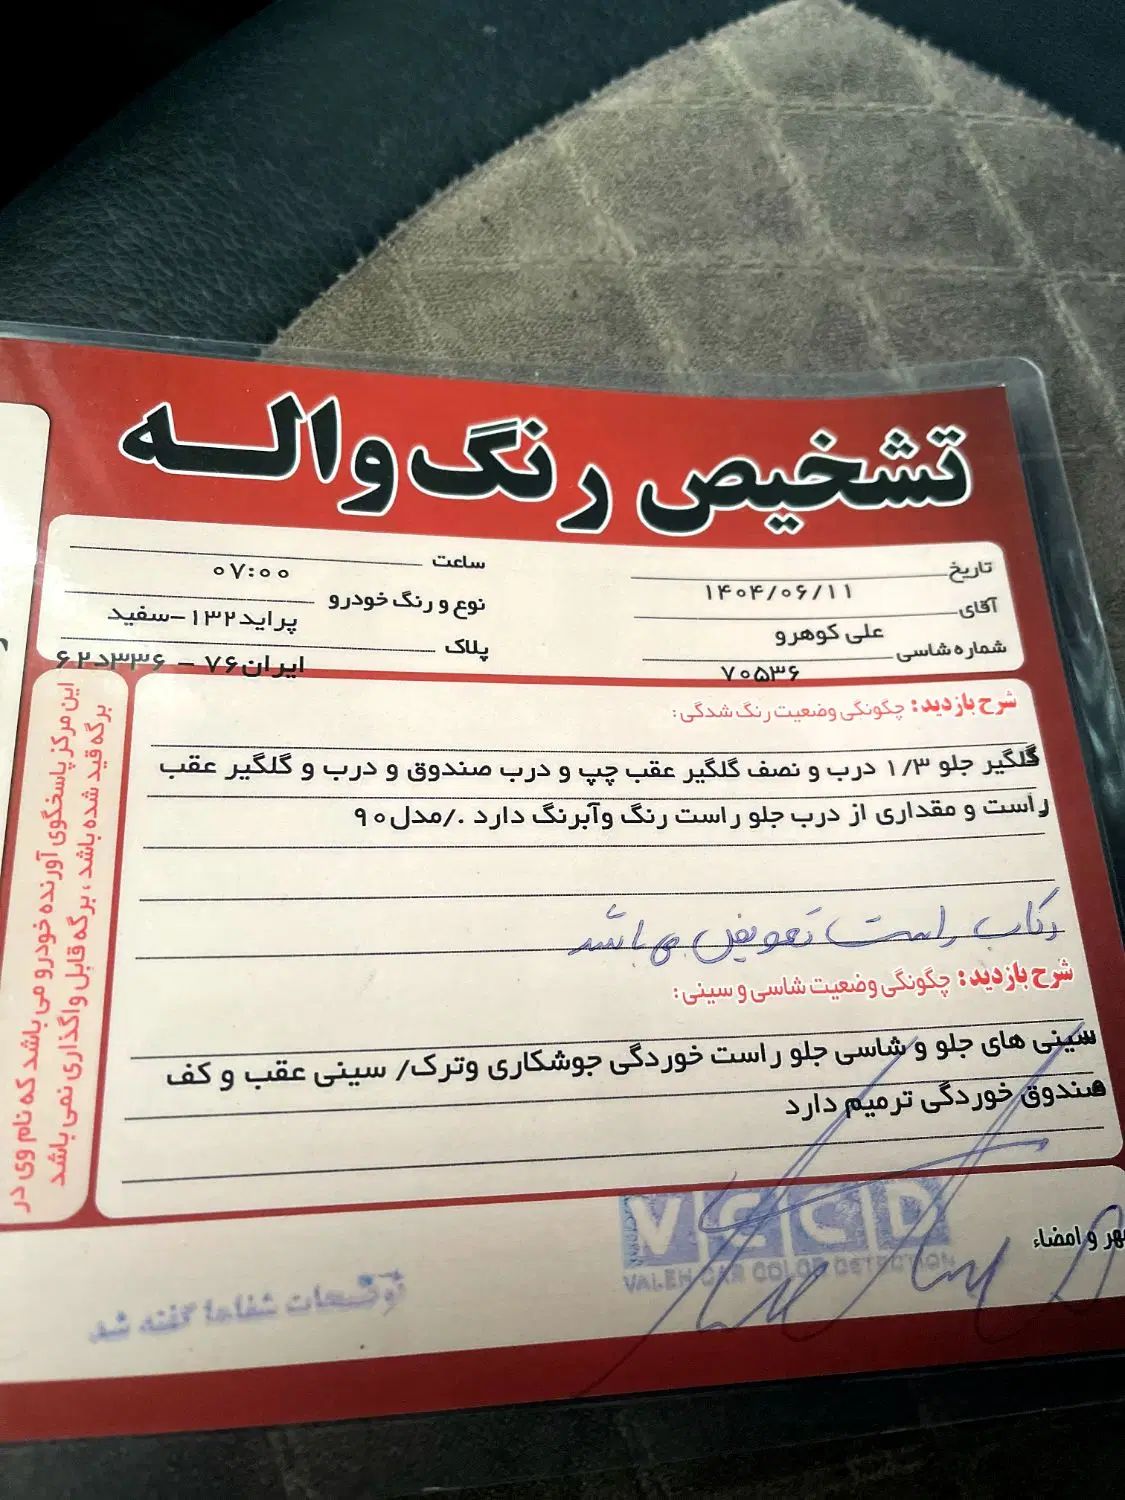 تشخیص رنگ واله
تاریخ ۱۴۰۴/۰۶/۱۱
ساعت ۰۷:۰۰
آقای علی کوهرو
نوع و رنگ خودرو پراید۱۳۲-سفید
شماره شاسی ۷۰۵۳۶
پلاک ایران۷۶ - ۳۳۶د۶۲
شرح بازدید: چگونگی وضعیت رنگ شدگی:
گلگیر جلو ۱/۳ درب و نصف گلگیر عقب چپ و درب صندوق و درب و گلگیر عقب
راست و مقداری از درب جلو راست رنگ وآبرنگ دارد ./مدل۹۰
رکاب راست تعویض می باشد
شرح بازدید: چگونگی وضعیت شاسی و سینی:
سینی های جلو و شاسی جلو راست خوردگی جوشکاری وترک/ سینی عقب و کف
صندوق خوردگی ترمیم دارد
مهر و امضاء
VCCD
VALEH CAR COLOR DETECTION
توضیحات شفاها گفته شد
این مرکز پاسخگوی آورنده خودرو می باشد که نام وی در
برگه قید شده باشد ، برگه قابل واگذاری نمی باشد